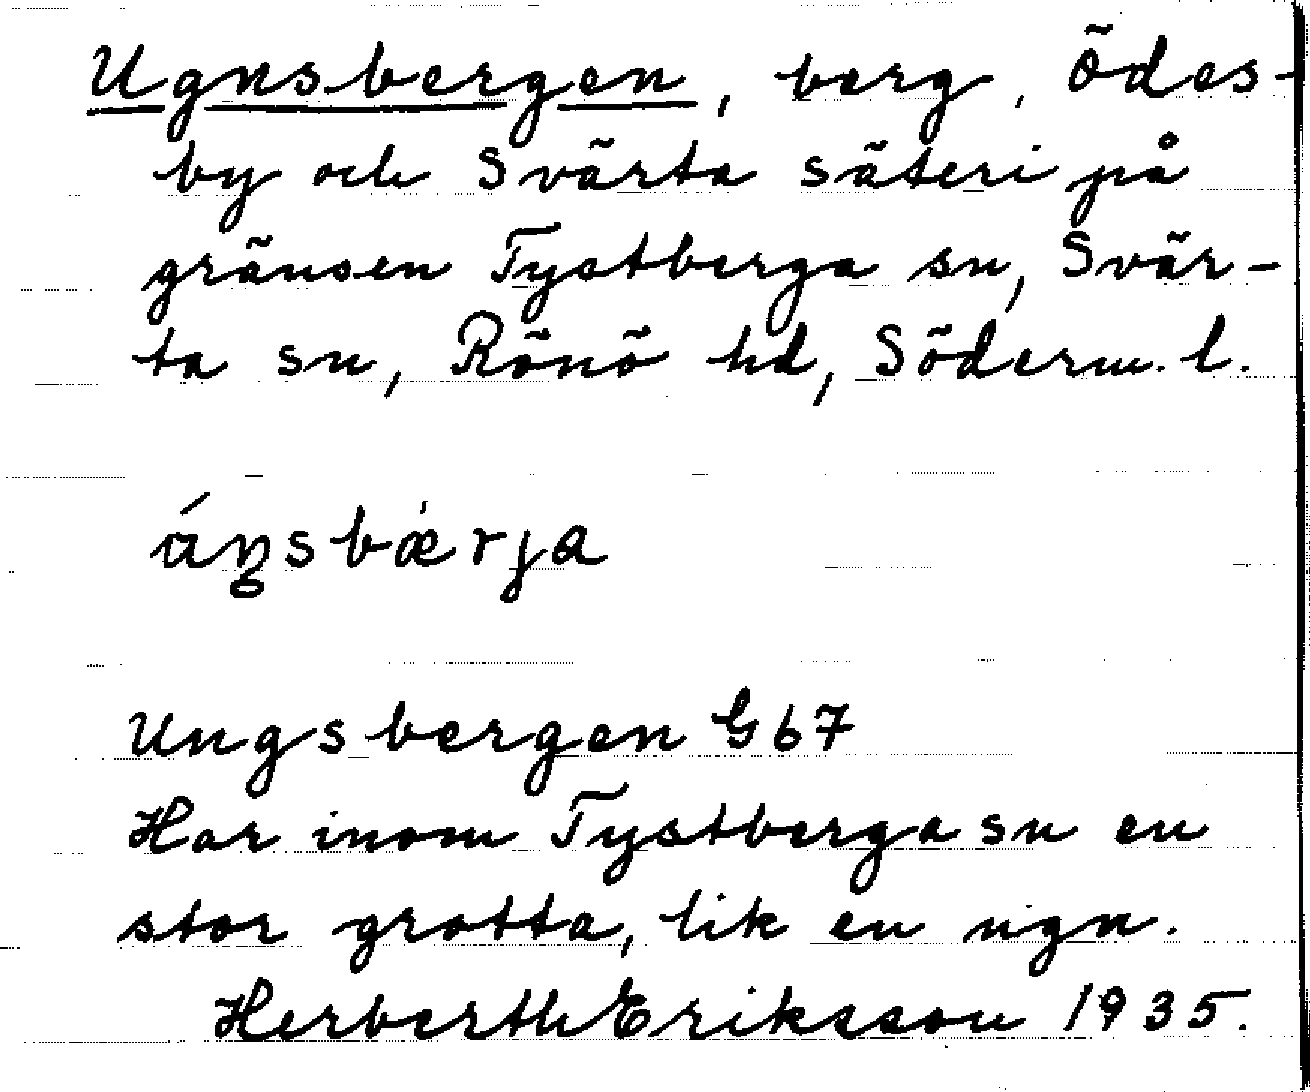 Ugnsbergen, berg, Ödes-
by och Svärta säteri på
gränsen Tystberga sn, Svär-
ta sn, Rönö hd, Söderm. l.
áŋsbærja
Ungsbergen G67
Har inom Tystberga sn en
stor grotta, lik en ugn.
Herberth Eriksson 1935.